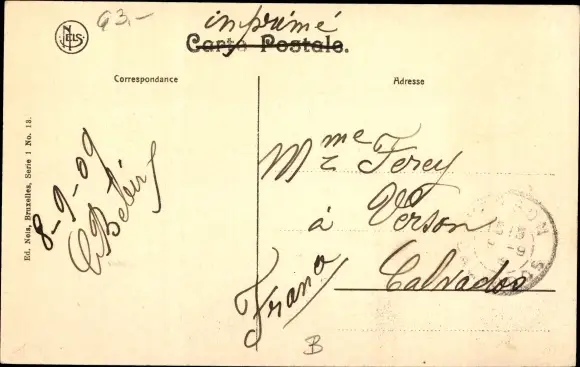 NELS
G3,-
imprimé
Carte Postale.
Correspondance
Adresse
Ed. Nels, Bruxelles, Serie 1 No. 13.
8-9-09
Mme Ferey
à Verson
Calvados
France
B